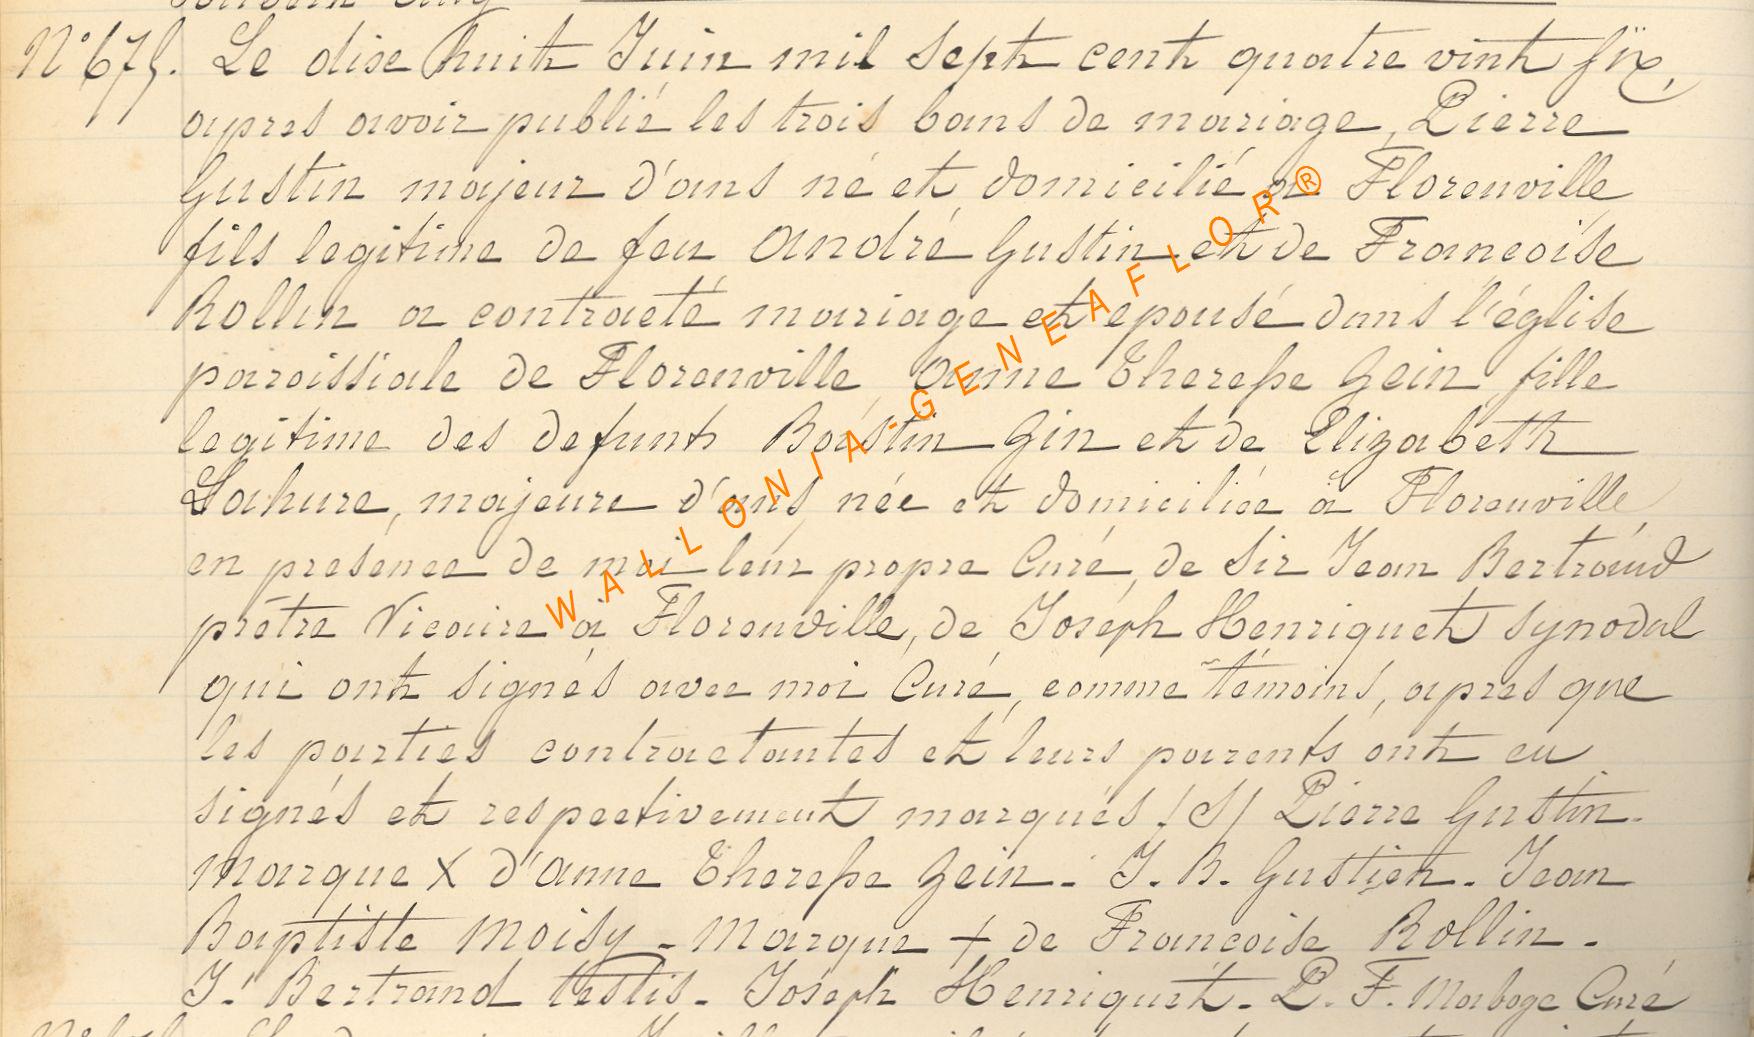 N° 675. Le dise huit Juin mil sept cent quatre vint six,
apres avoir publié les trois bans de mariage, Pierre
Gustin majeur d'ans né et domicilié a Florenville
fils legitime de feu André Gustin et de Francoise
Rollin a contracté mariage et epousé dans l'église
paroissiale de Florenville, Anne Therese Gein, fille
legitime des defunts Bastin Gin et de Elizabeth
Lahure, majeure d'ans née et domiciliée à Florenville
en presence de moi leur propre Curé, de Sir Jean Bertrand
prêtre Vicaire à Florenville, de Joseph Henriquet synodal
qui ont signés avec moi Curé, comme témoins, apres que
les parties contractantes et leurs parents ont eu
signés et respectivement marqués /S/ Pierre Gustin.
Marque X d'Anne Therese Gein - J. B. Gustien - Jean
Baptiste Moisy - Marque + de Francoise Rollin -
J. Bertrand testis - Joseph Henriquet - P. F. Marboge Curé
WALLONIA-GENEAFLOR®